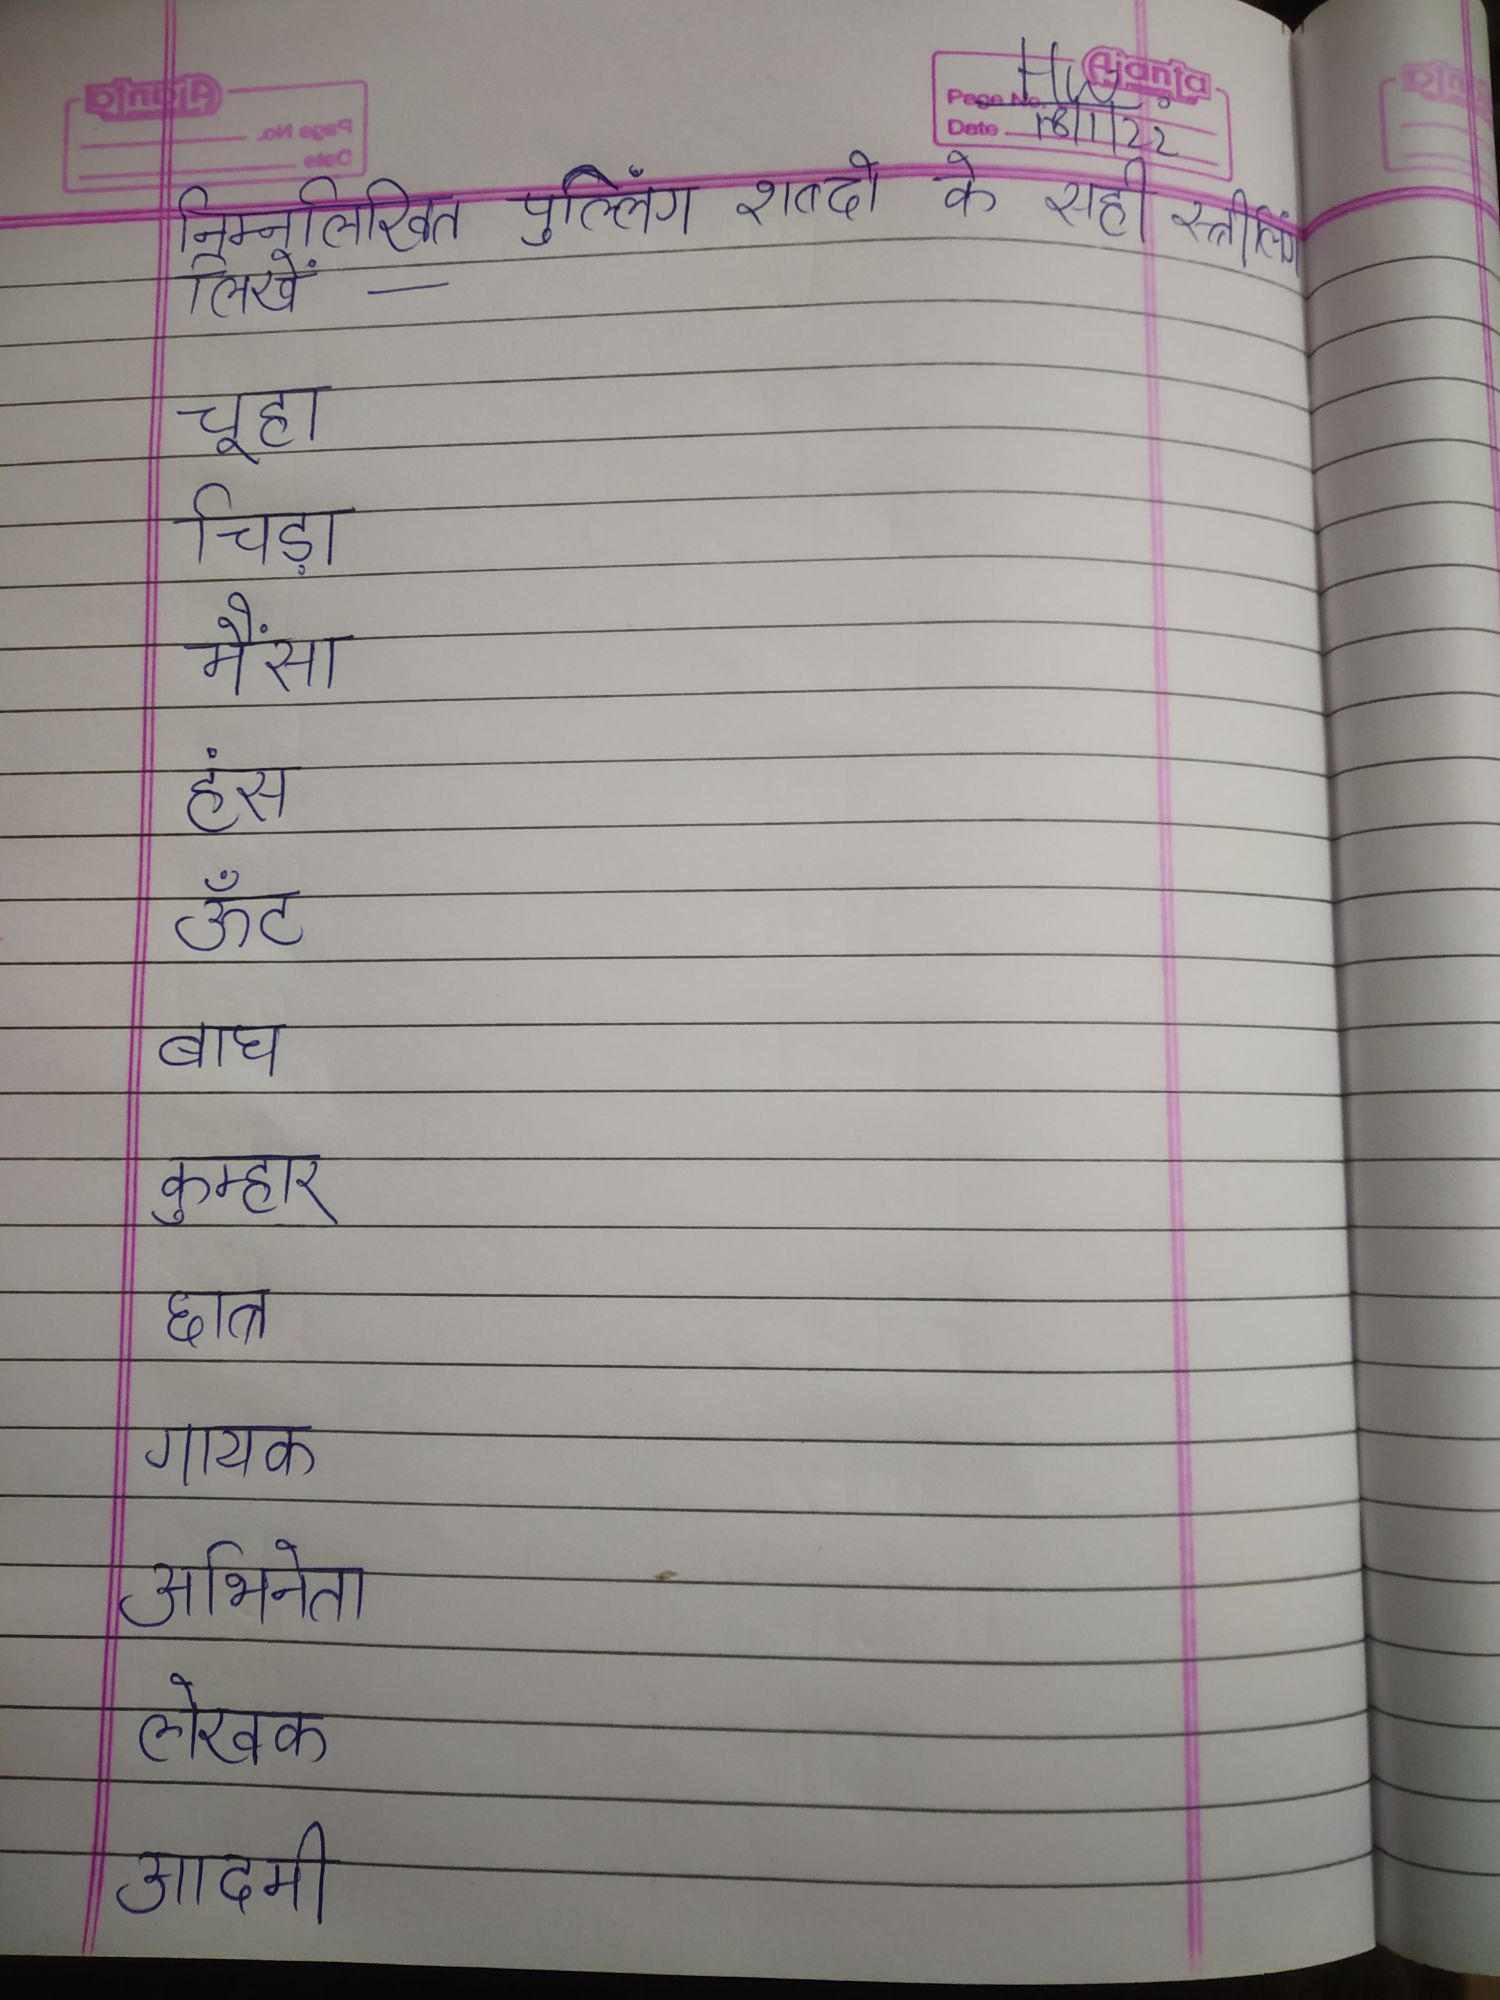 Ajanta
Page No. HW
Date 18/1/22
निम्नलिखित पुल्लिंग शब्दो के सही स्त्रीलिंग
लिखें —
चूहा
चिड़ा
भैंसा
हंस
ऊँट
बाघ
कुम्हार
छात्र
गायक
अभिनेता
लेखक
आदमी